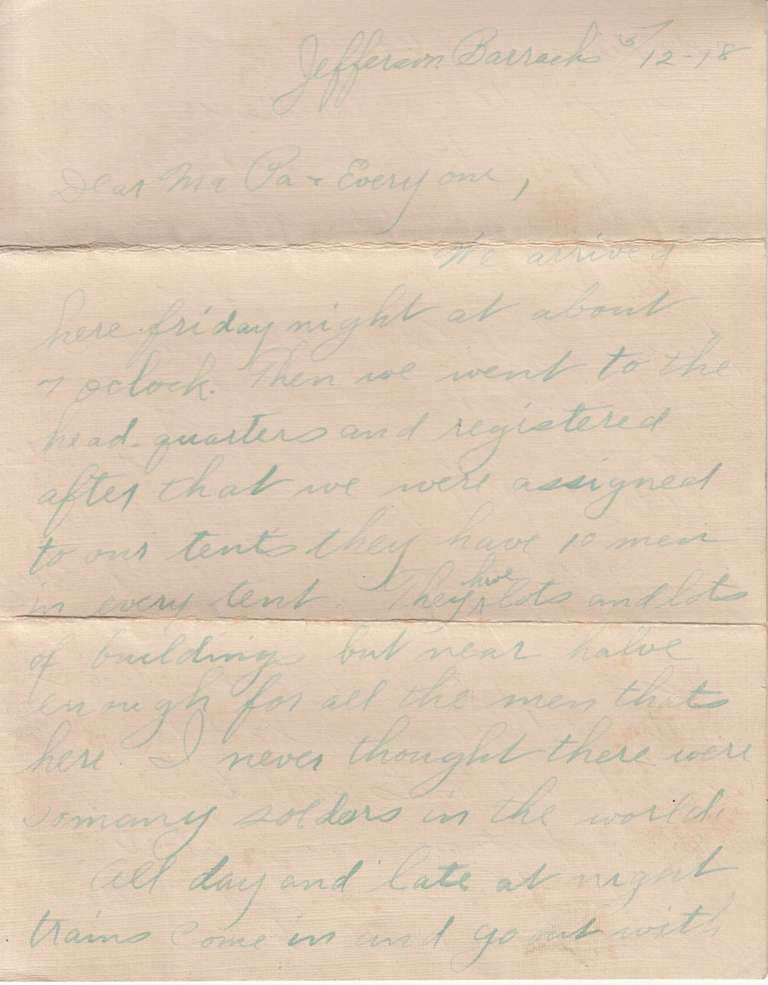 Jefferson Barracks 5/12-18
Dear Ma Pa + Everyone,
We arrived
here friday night at about
7 oclock. Then we went to the
head-quarters and registered
after that we were assigned
to our tents they have 10 men
in every tent. They have lots and lots
of buildings but near halve
enough for all the men thats
here. I never thought there were
somany solders in the world.
All day and late at night
trains come in and go out with